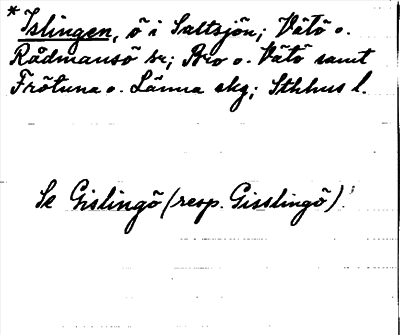 * Islingen, ö i Saltsjön; Vätö o.
Rådmansö sr; Bro o. Vätö samt
Frötuna o. Länna skg; Sthlms l.
Se Gislingö (resp. Gisslingö).